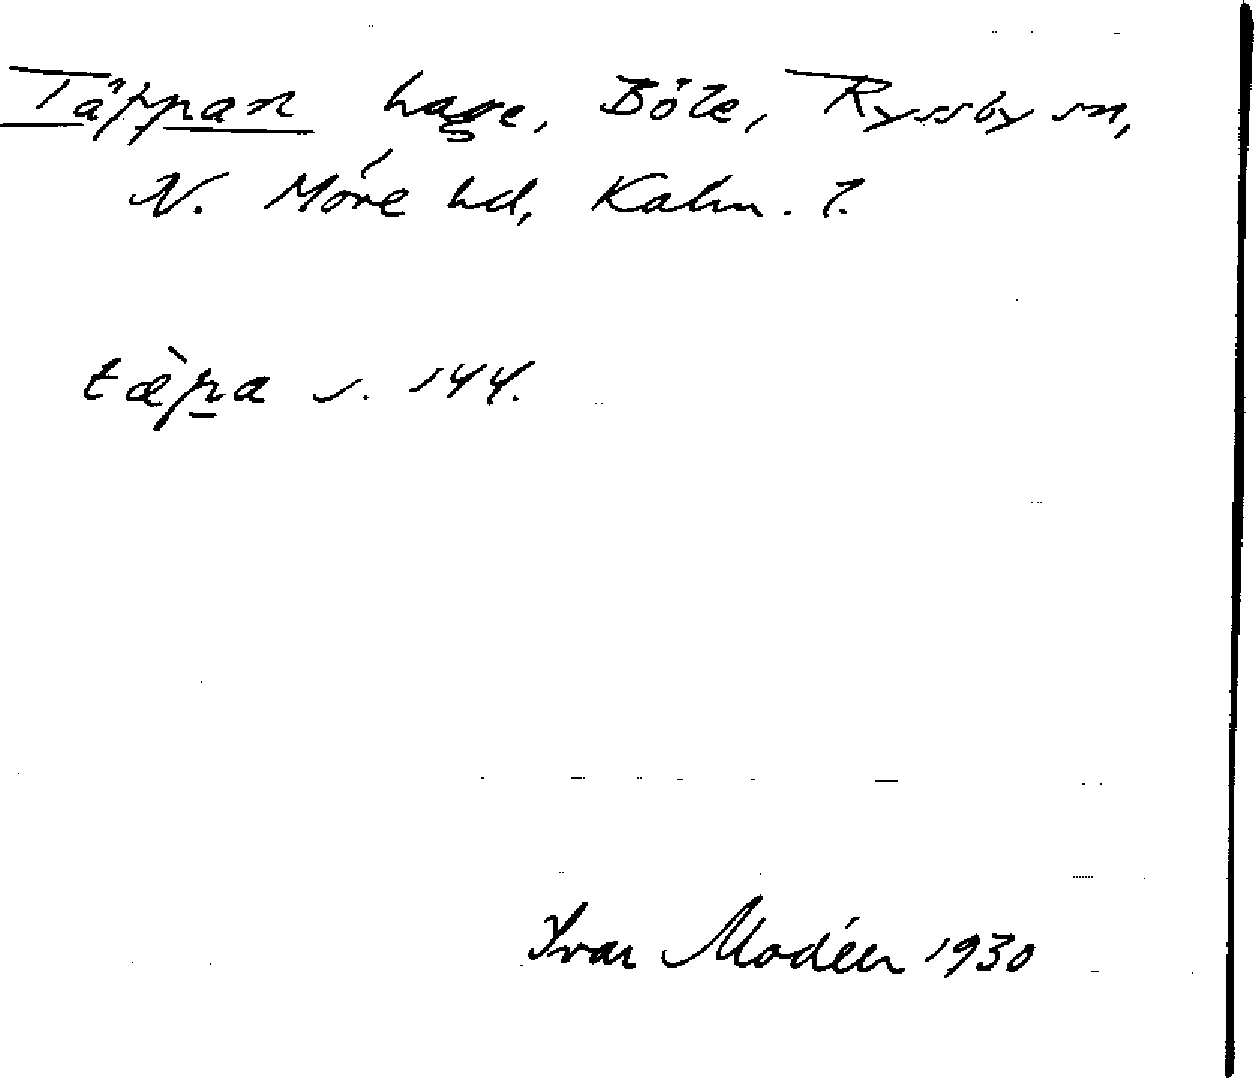 Täppan hage, Böle, Ryssby sn,
N. Möre hd, Kalm. l.
tæ̀pa s. 144.
Ivar Modéer 1930